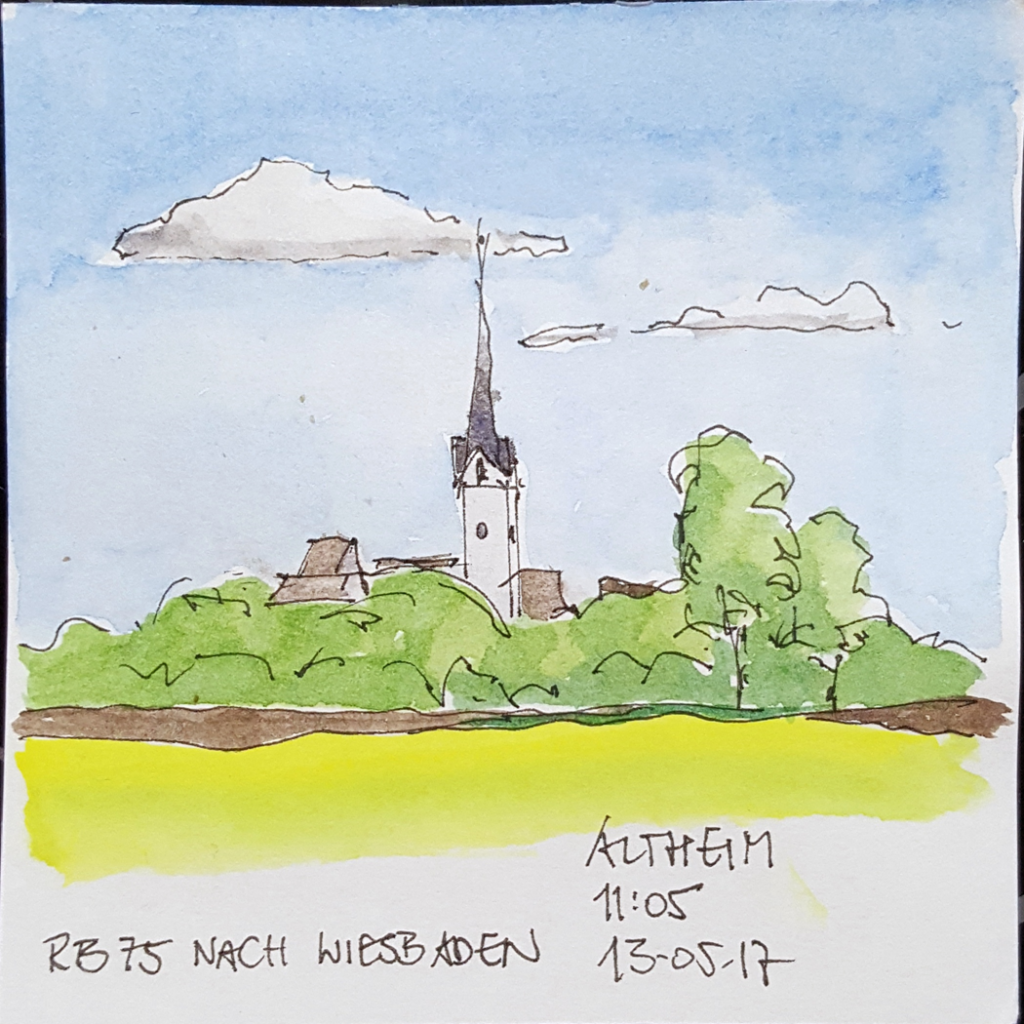 ALTHEIM
11:05
RB75 NACH WIESBADEN
13-05-17